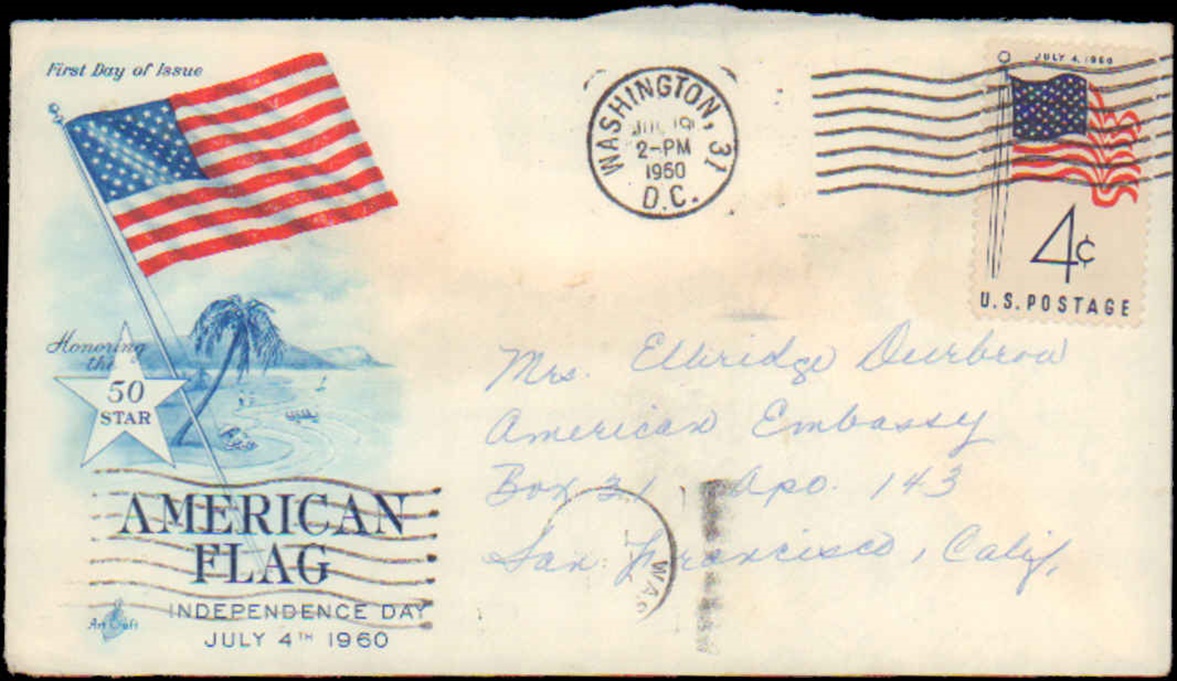 First Day of Issue
Honoring
the
50
STAR
AMERICAN
FLAG
INDEPENDENCE DAY
JULY 4TH 1960
Art Craft
WASHINGTON, 31
D.C.
19
2-PM
1960
JULY 4, 1960
4¢
U.S. POSTAGE
Mrs. Elbridge Durbrow
American Embassy
Box 31 Apo. 143
San Francisco, Calif.